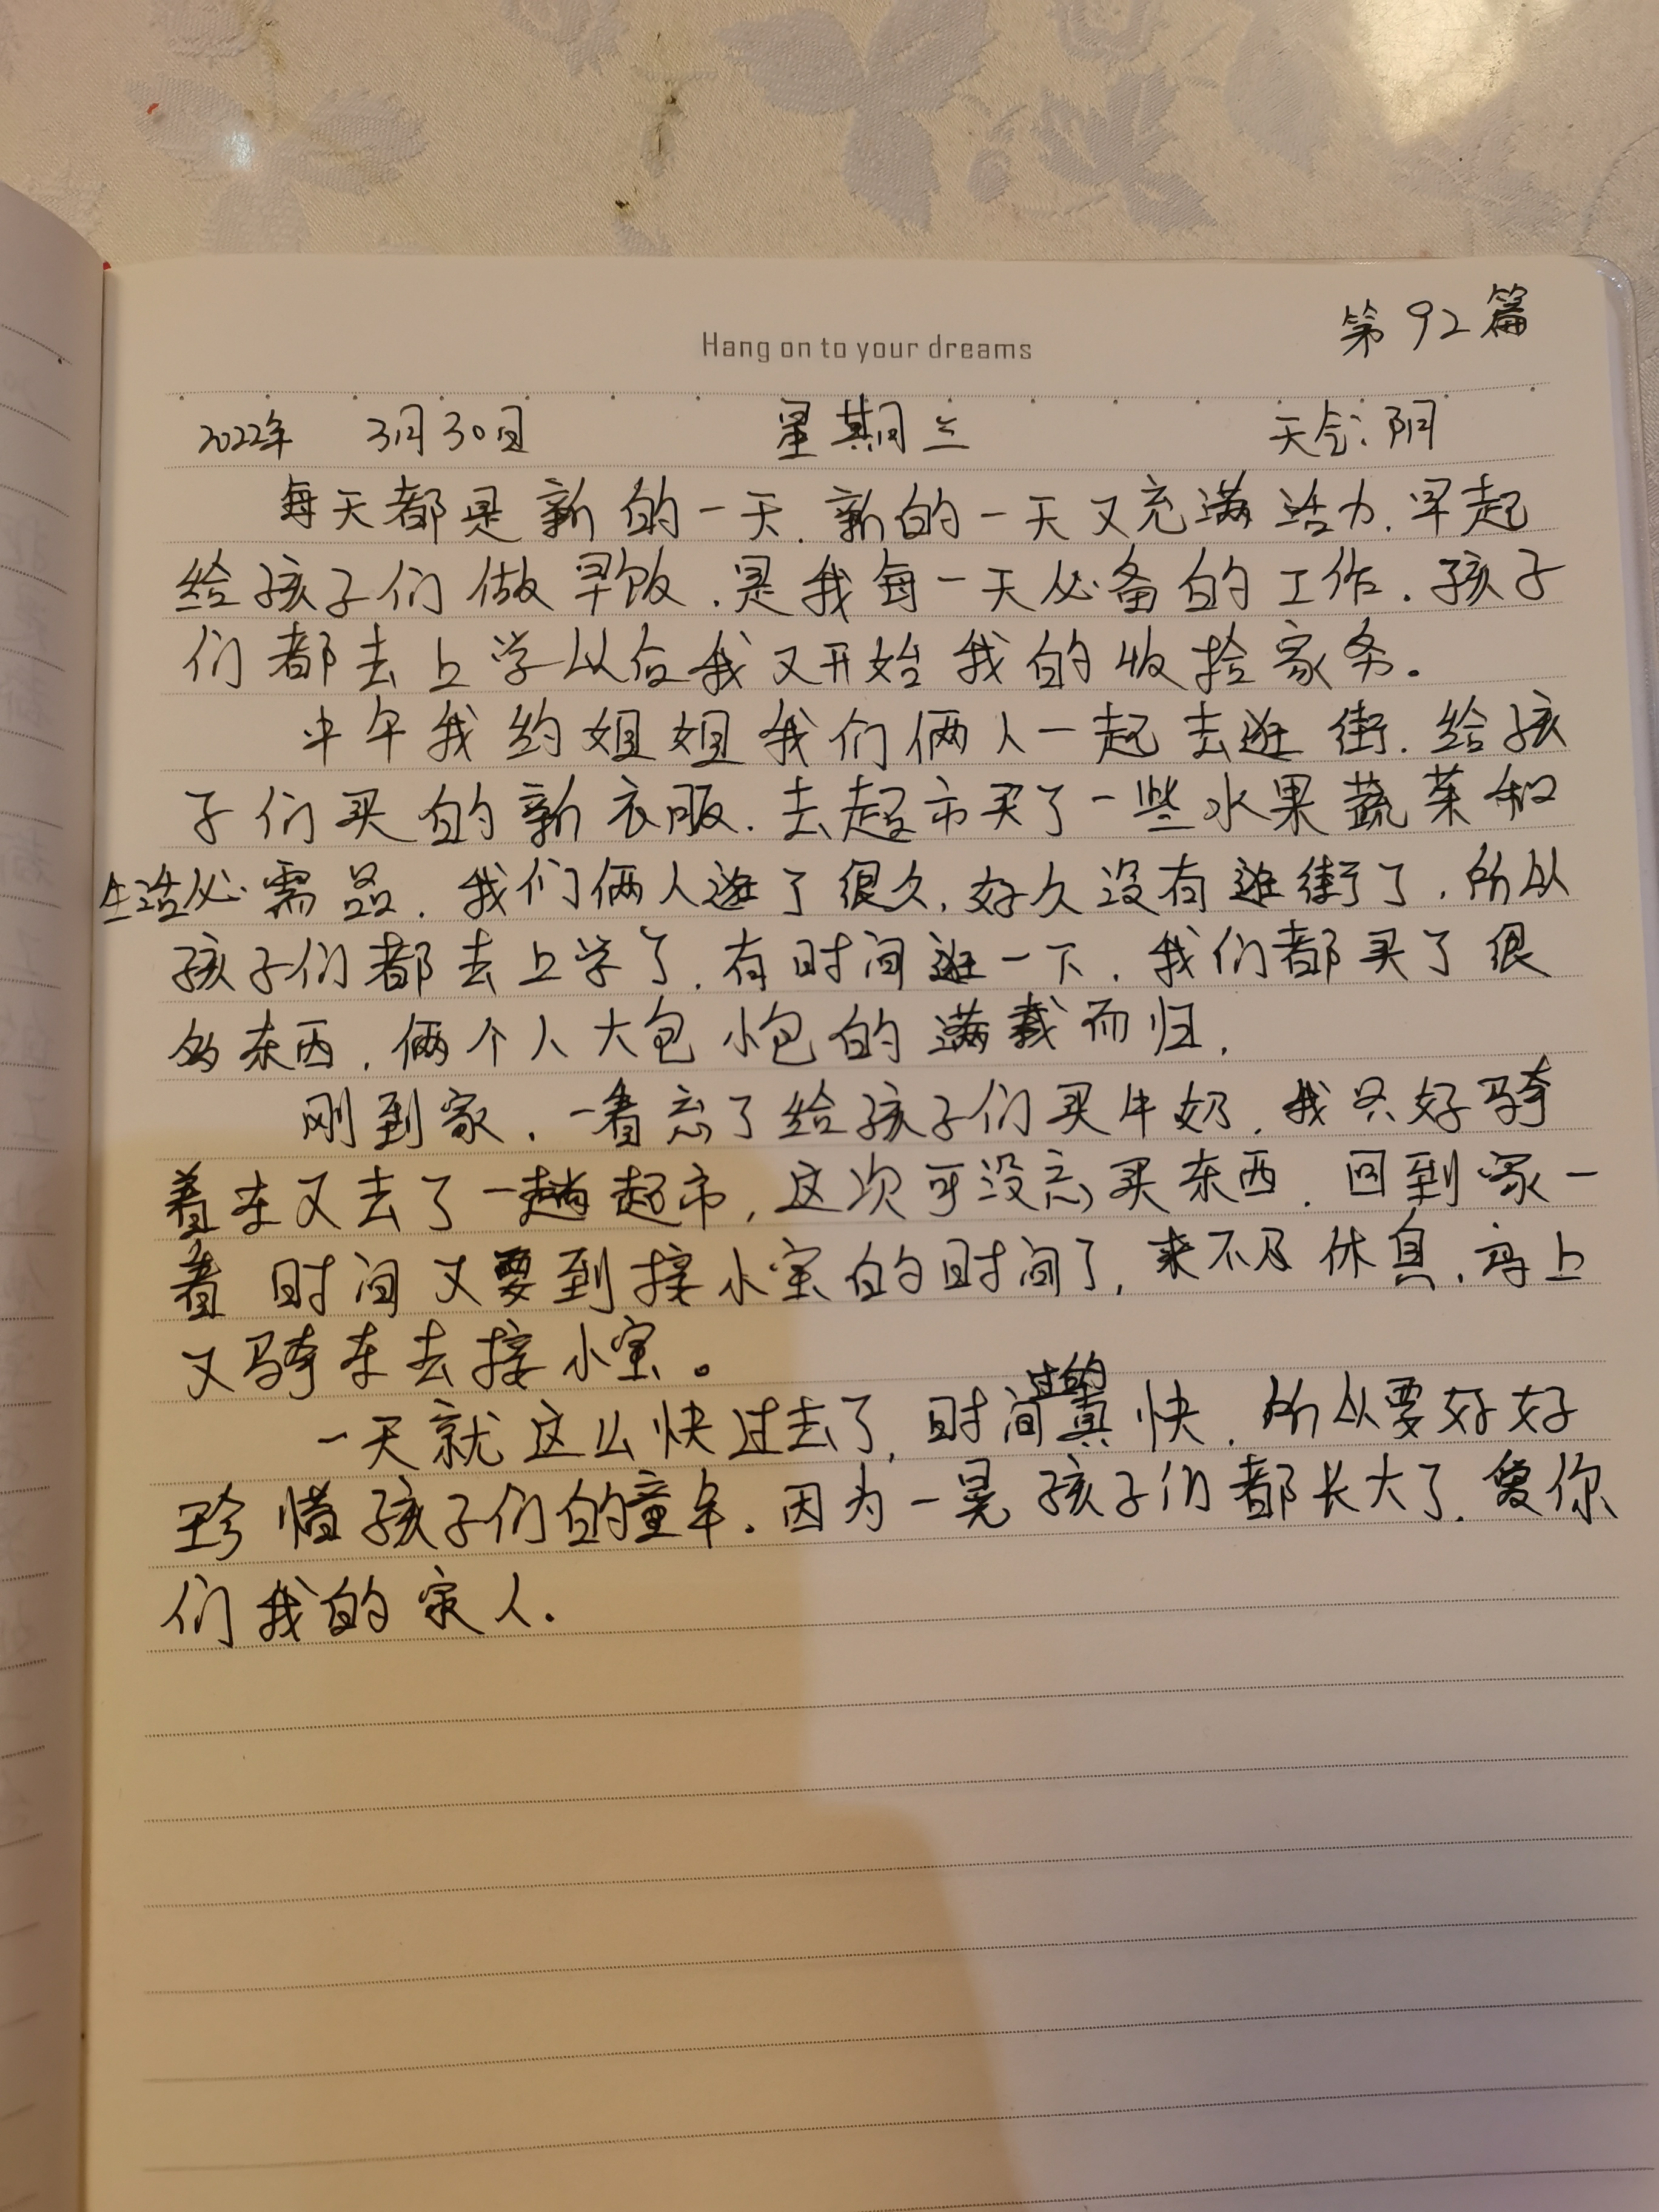 第92篇
Hang on to your dreams
2022年 3月30日 星期三 天气:阴
每天都是新的一天.新的一天又充满活力.早起
给孩子们做早饭.是我每一天必备的工作.孩子
们都去上学以后我又开始我的收拾家务。
中午我约姐姐我们俩人一起去逛街.给孩
子们买的新衣服.去超市买了一些水果蔬菜和
生活必需品.我们俩人逛了很久,好久没有逛街了,所以
孩子们都去上学了,有时间逛一下,我们都买了很
多东西,俩个人大包小包的满载而归,
刚到家,一看忘了给孩子们买牛奶,我只好骑
着车又去了一趟超市,这次可没忘买东西.回到家一
看时间又要到接小宝的时间了,来不及休息.马上
又骑车去接小宝。
一天就这么快过去了,时间过的真快.所以要好好
珍惜孩子们的童年.因为一晃孩子们都长大了.爱你
们我的家人.